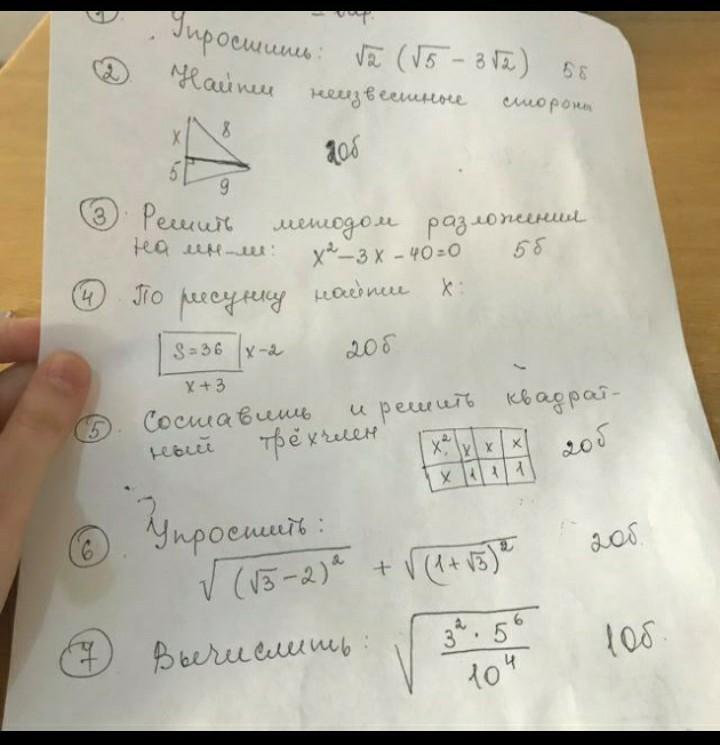 1
вар.
Упростить: √2 (√5 - 3√2) 5б
2 Найти неизвестные стороны
x 8
5 9
20б
3 Решить методом разложения
на мн-ли: x² - 3x - 40 = 0 5б
4 По рисунку найти x:
S = 36 x - 2 20б
x + 3
5 Составить и решить квадрат-
ный трёхчлен
x² x x x
x 1 1 1
20б
6 Упростить:
√((√3 - 2)²) + √((1 + √3)²) 20б.
7 Вычислить: √(3² · 5⁶ / 10⁴) 10б.